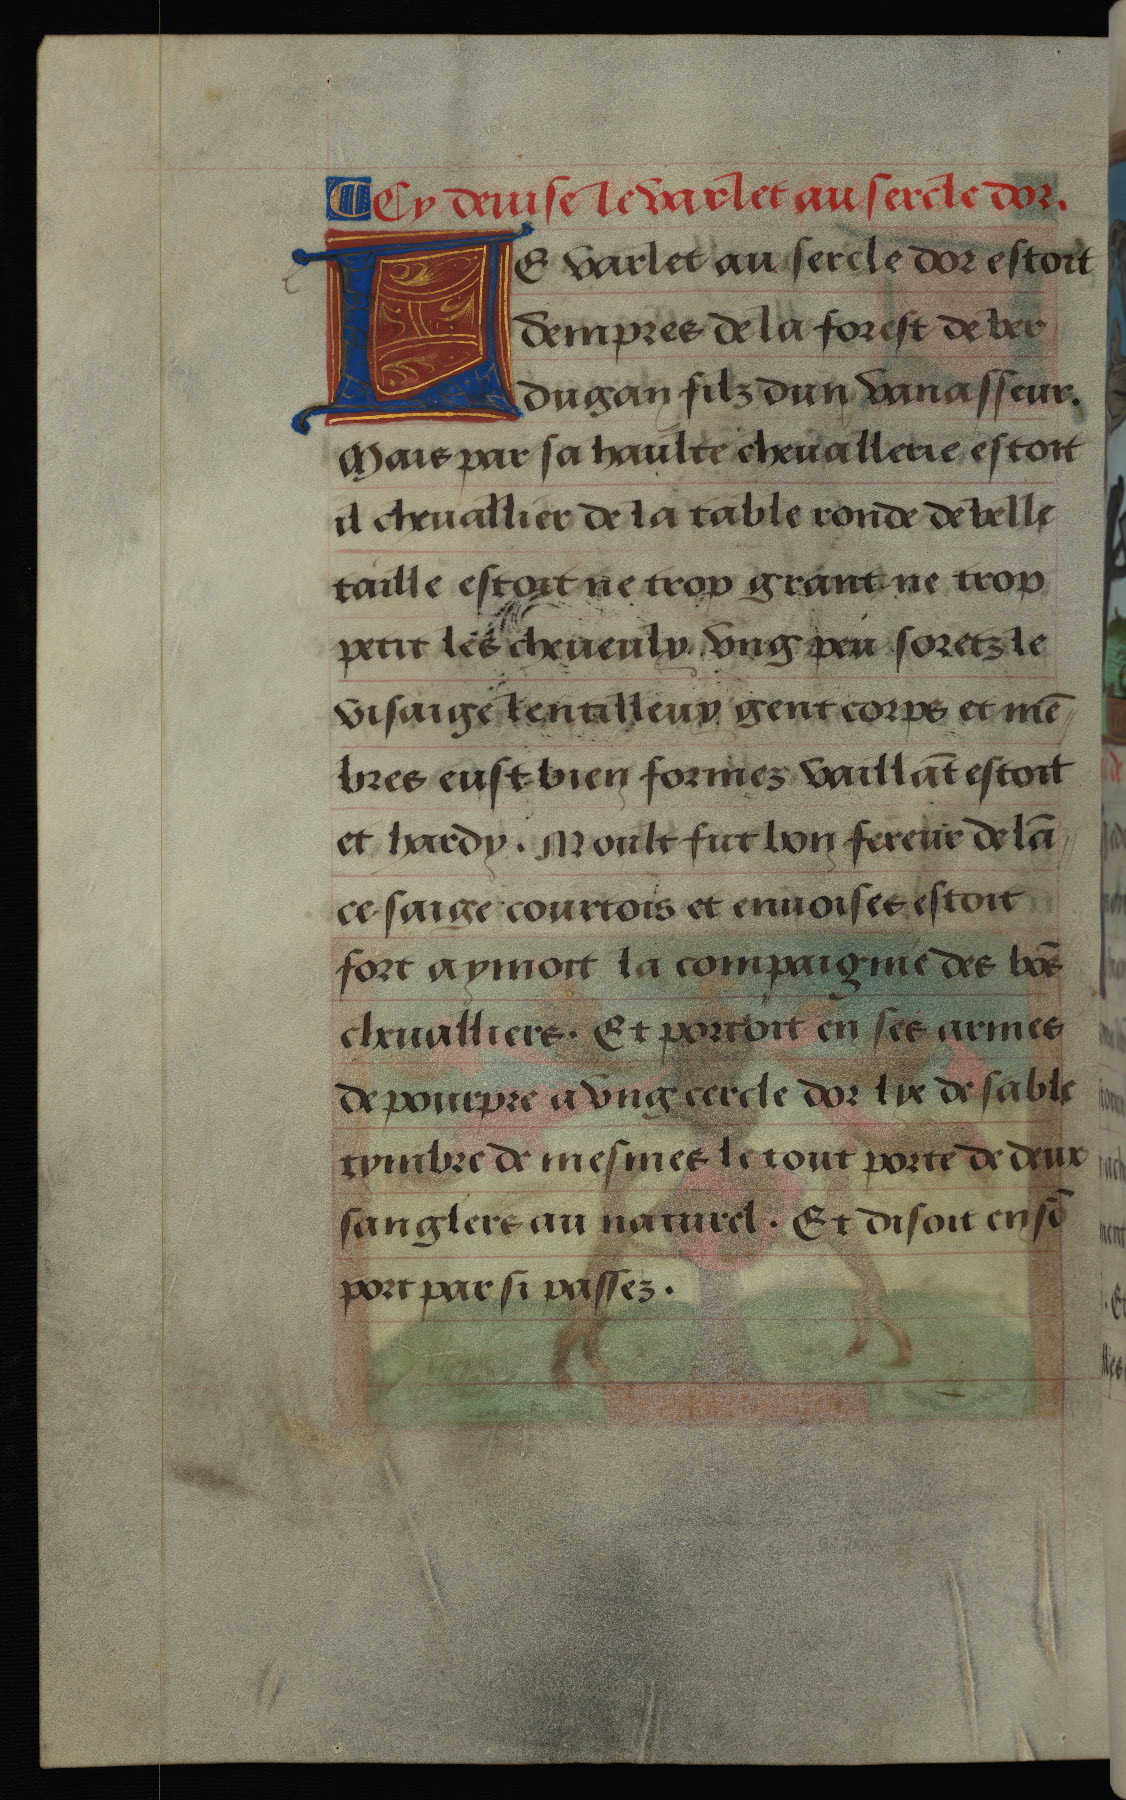 Cy deuise le varlet au sercle dor.
LE varlet au sercle dor estoit
dempres de la forest de ber
dugan filz dun vauasseur.
Mais par sa haulte cheuallerie estoit
il cheuallier de la table ronde de belle
taille estoit ne trop grant ne trop
petit les cheueulx vng peu soretz le
visaige lentilleux gent corps et mē
bres eust bien formez vaillāt estoit
et hardy. Moult fut bon fereur de lā
ce saige courtois et enuoises estoit
fort aymoit la compaignie des bōs
cheualliers. Et portoit en ses armes
de pourpre a vng cercle dor lixe de sable
tymbre de mesmes le tout porte de deux
sanglers au naturel. Et disoit en sō
port par si passez.